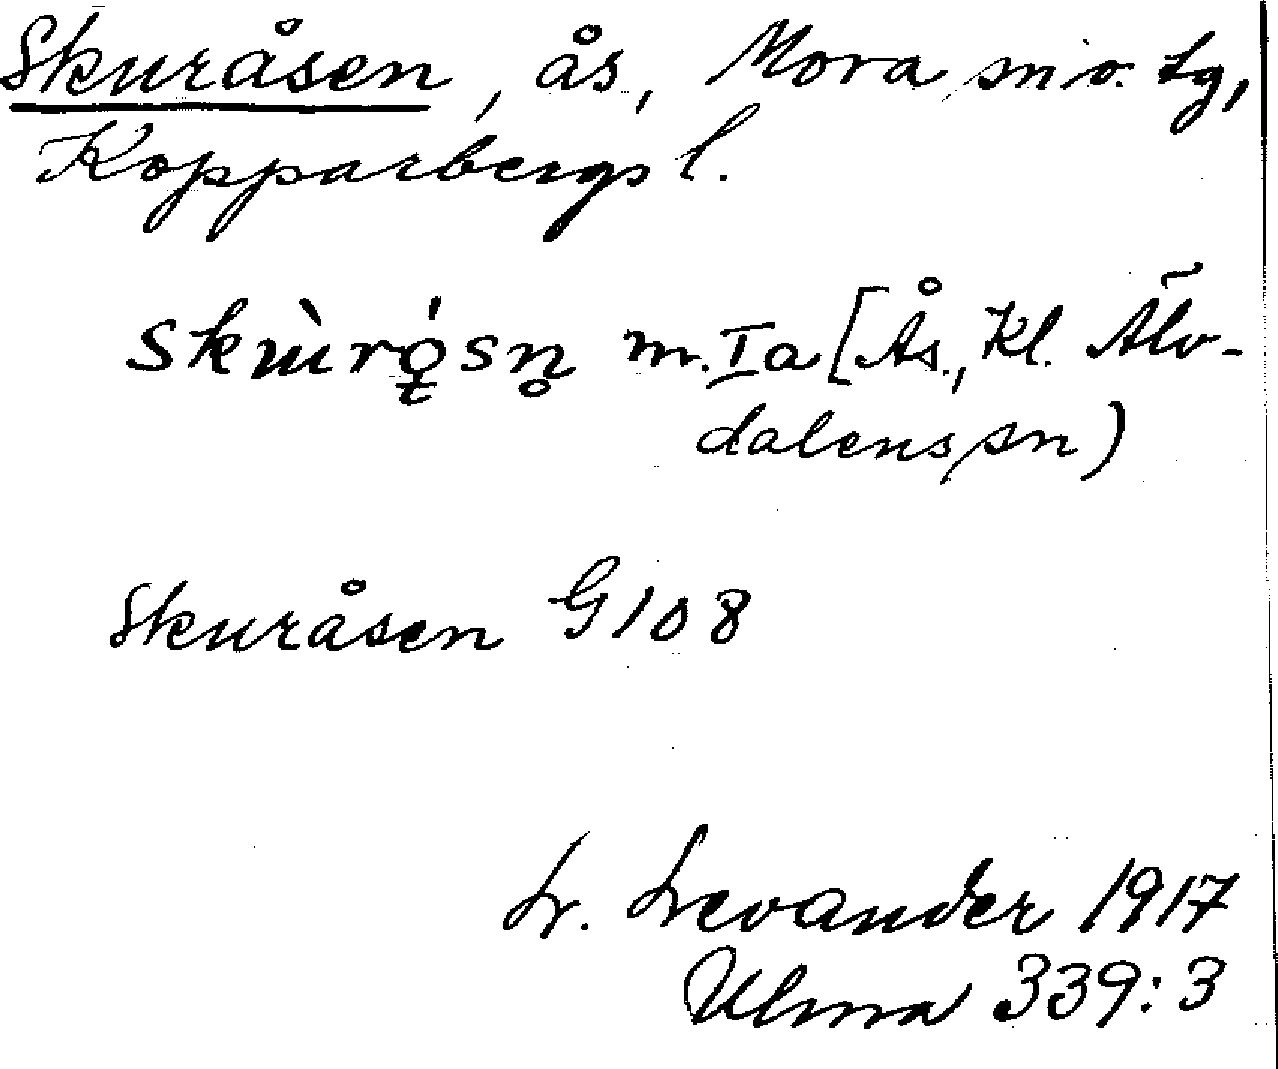 Skuråsen, ås, Mora sn o. tg,
Kopparbergs l.
m. Ia [Ås., Kl. Älv-
dalens sn)
Skuråsen G108
L. Levander 1917
Ulma 339:3